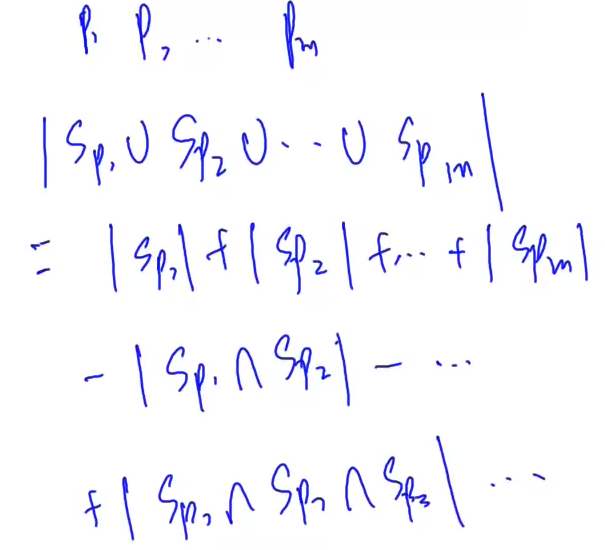 p₁ p₂ ... pₘ
| Sp₁ ∪ Sp₂ ∪ ... ∪ Spₘ |
= | Sp₁ | + | Sp₂ | + ... + | Spₘ |
- | Sp₁ ∩ Sp₂ | - ...
+ | Sp₁ ∩ Sp₂ ∩ Sp₃ | ...